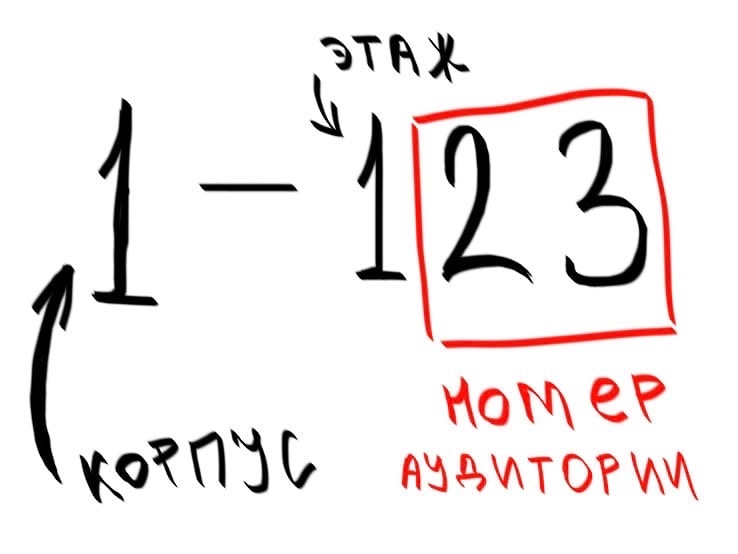 ЭТАЖ
1 - 123
КОРПУС
НОМЕР
АУДИТОРИИ